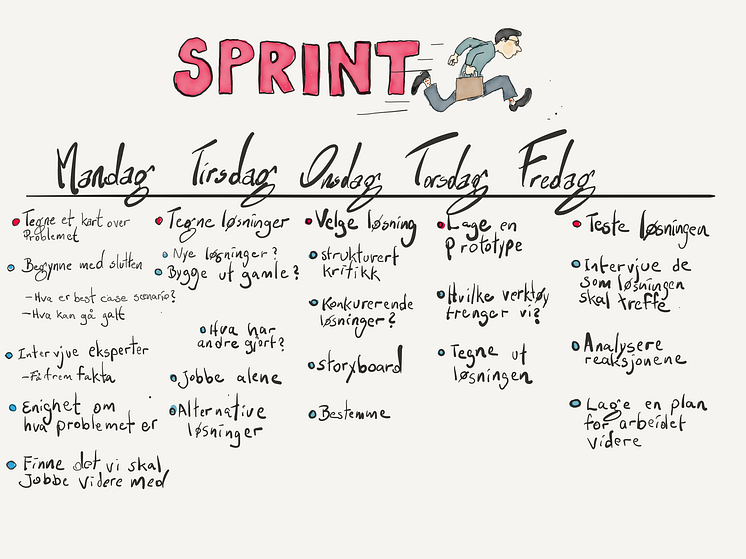 SPRINT
Mandag Tirsdag Onsdag Torsdag Fredag
Tegne et kart over
Problemet
Begynne med slutten
-Hva er best case scenario?
-Hva kan gå galt
Intervjue eksperter
-Få frem fakta
Enighet om
hva problemet er
Finne det vi skal
Jobbe videre med
Tegne løsninger
Nye løsninger?
Bygge ut gamle?
Hva har
andre gjort?
Jobbe alene
Alternative
løsninger
Velge løsning
strukturert
kritikk
Konkurerende
løsninger?
storyboard
Bestemme
Lage en
prototype
Hvilke verktøy
trenger vi?
Tegne ut
løsningen
Teste løsningen
Intervjue de
som løsningen
skal treffe
Analysere
reaksjonene
Lage en plan
for arbeidet
videre